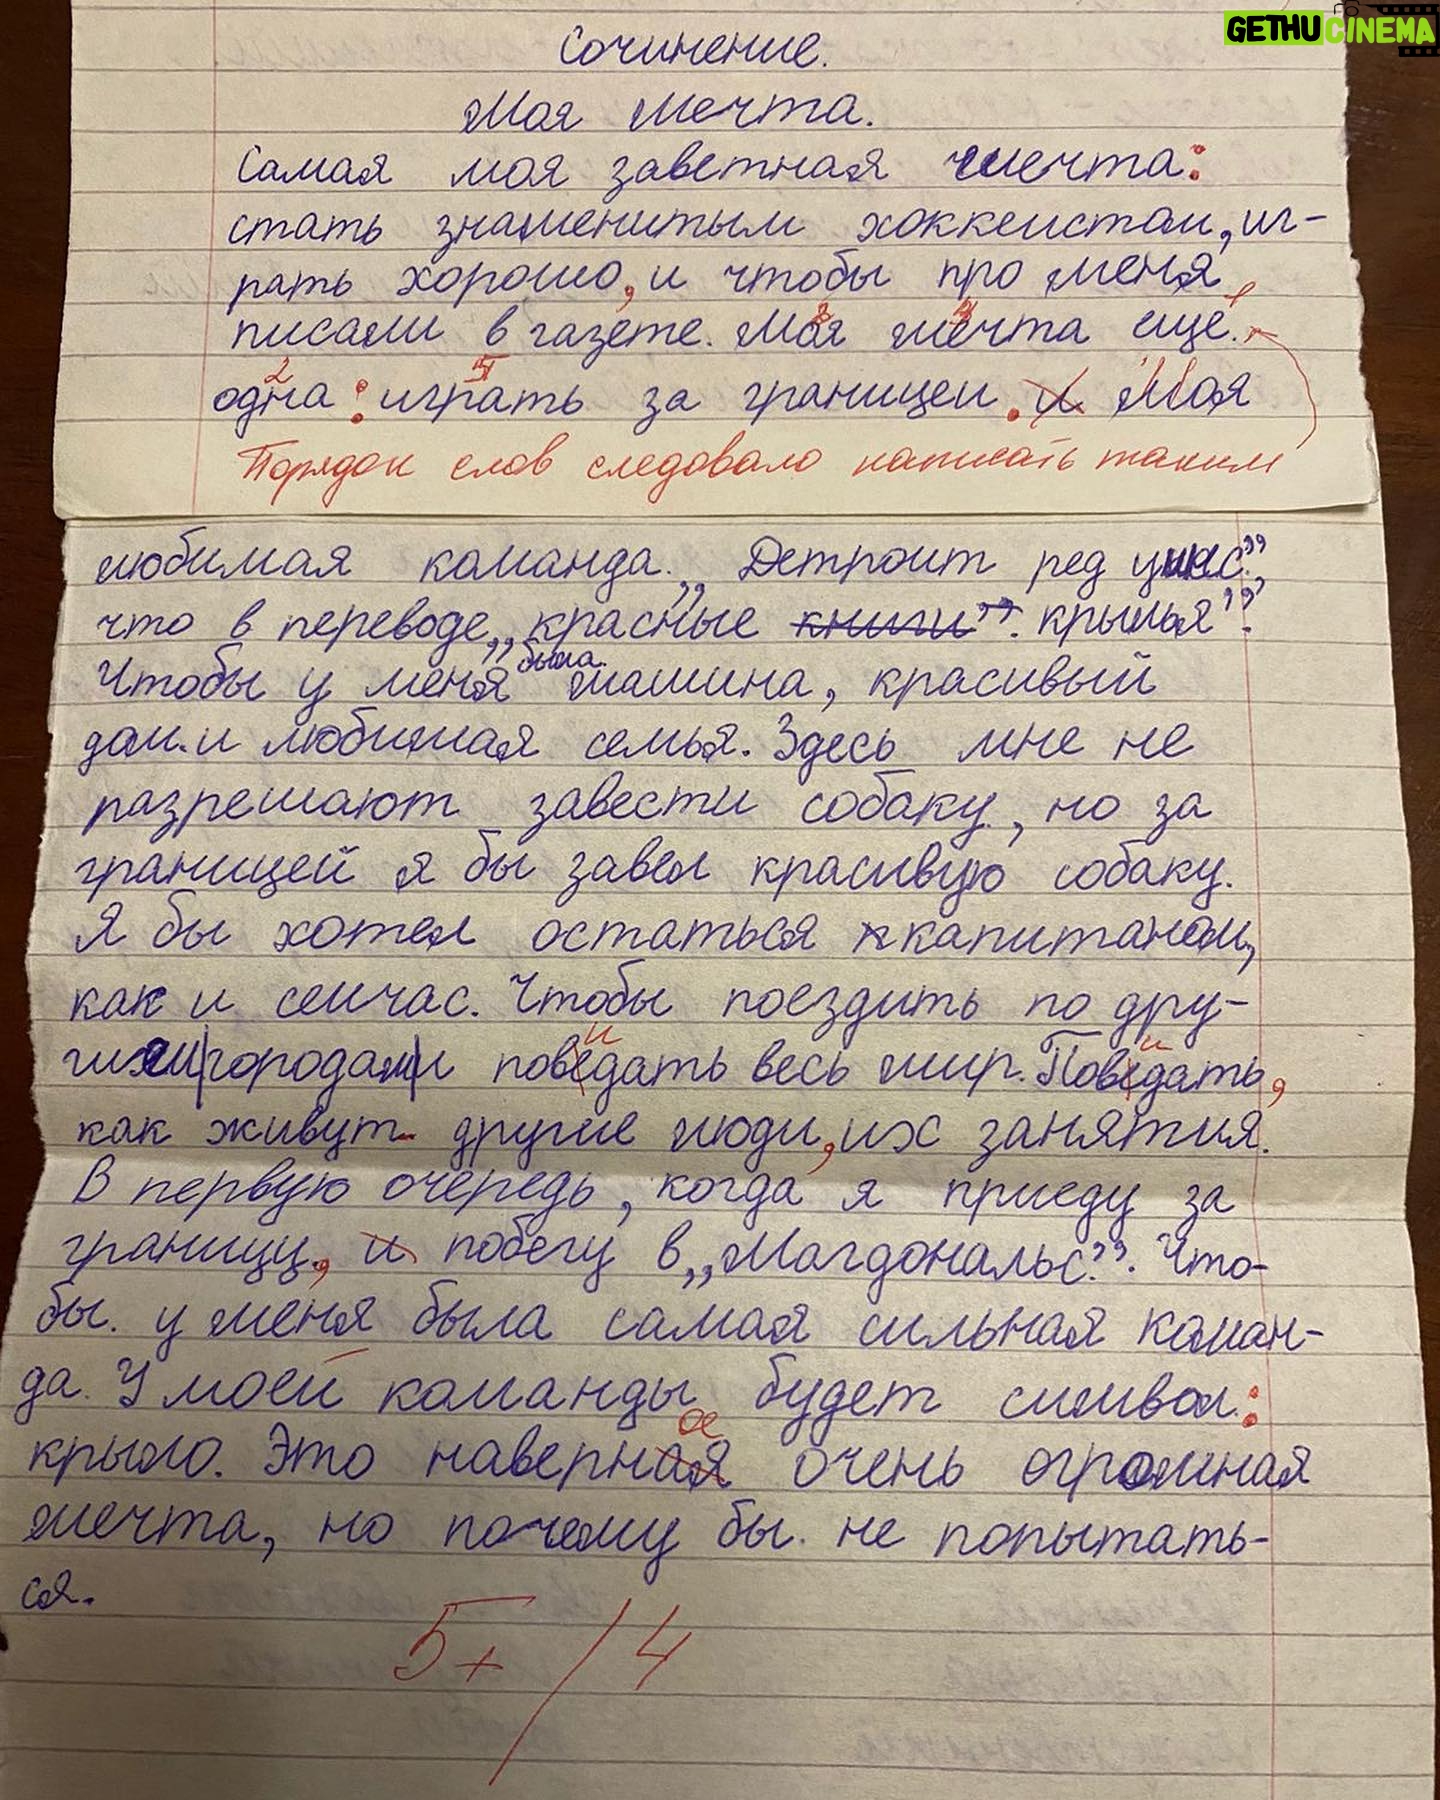 GETHUCINEMA
Сочинение.
Моя мечта.
Самая моя заветная мечта:
стать знаменитым хоккеистом, иг-
рать хорошо, и чтобы про меня
писали в газете. Моя мечта еще
одна: играть за границей. и Моя
Порядок слов следовало написать таким
любимая команда „Детроит ред уинс”,
что в переводе „красные книги”. крылья”.
Чтобы у меня была машина, красивый
дом и любимая семья. Здесь мне не
разрешают завести собаку, но за
границей я бы завел красивую собаку.
Я бы хотел остаться капитаном,
как и сейчас. Чтобы поездить по дру-
гим городам и поведать весь мир. Поведать,
как живут другие люди, их занятия.
В первую очередь, когда я приеду за
границу, и побегу в „Магдональс”. Что-
бы у меня была самая сильная коман-
да. У моей команды будет символ:
крыло. Это наверная очень огромная
мечта, но почему бы не попытать-
ся.
5+ / 4